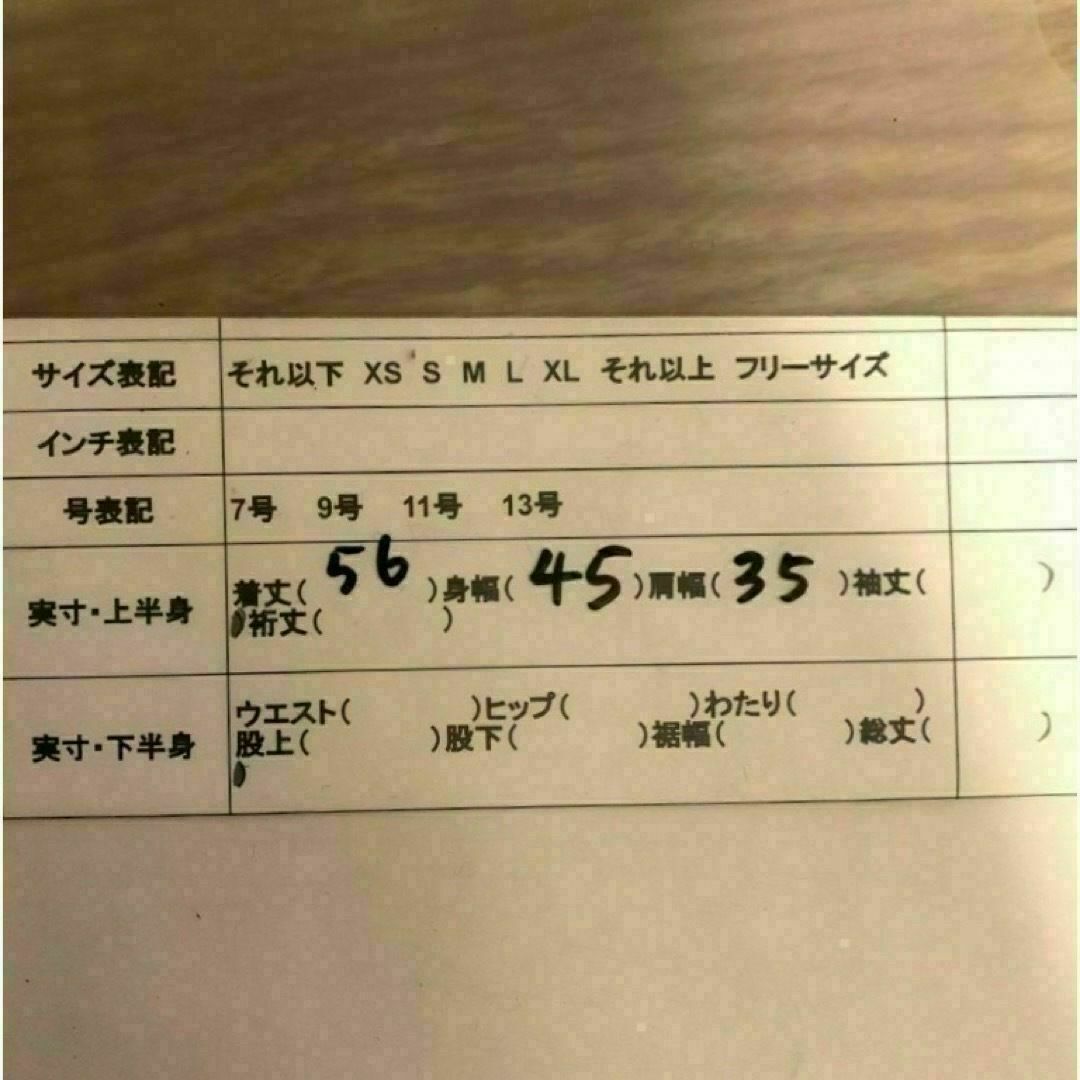 サイズ表記 それ以下 XS S M L XL それ以上 フリーサイズ
インチ表記
号表記 7号 9号 11号 13号
実寸・上半身 着丈( 56 )身幅( 45 )肩幅( 35 )袖丈( )
裄丈( )
実寸・下半身 ウエスト( )ヒップ( )わたり( )
股上( )股下( )裾幅( )総丈( )